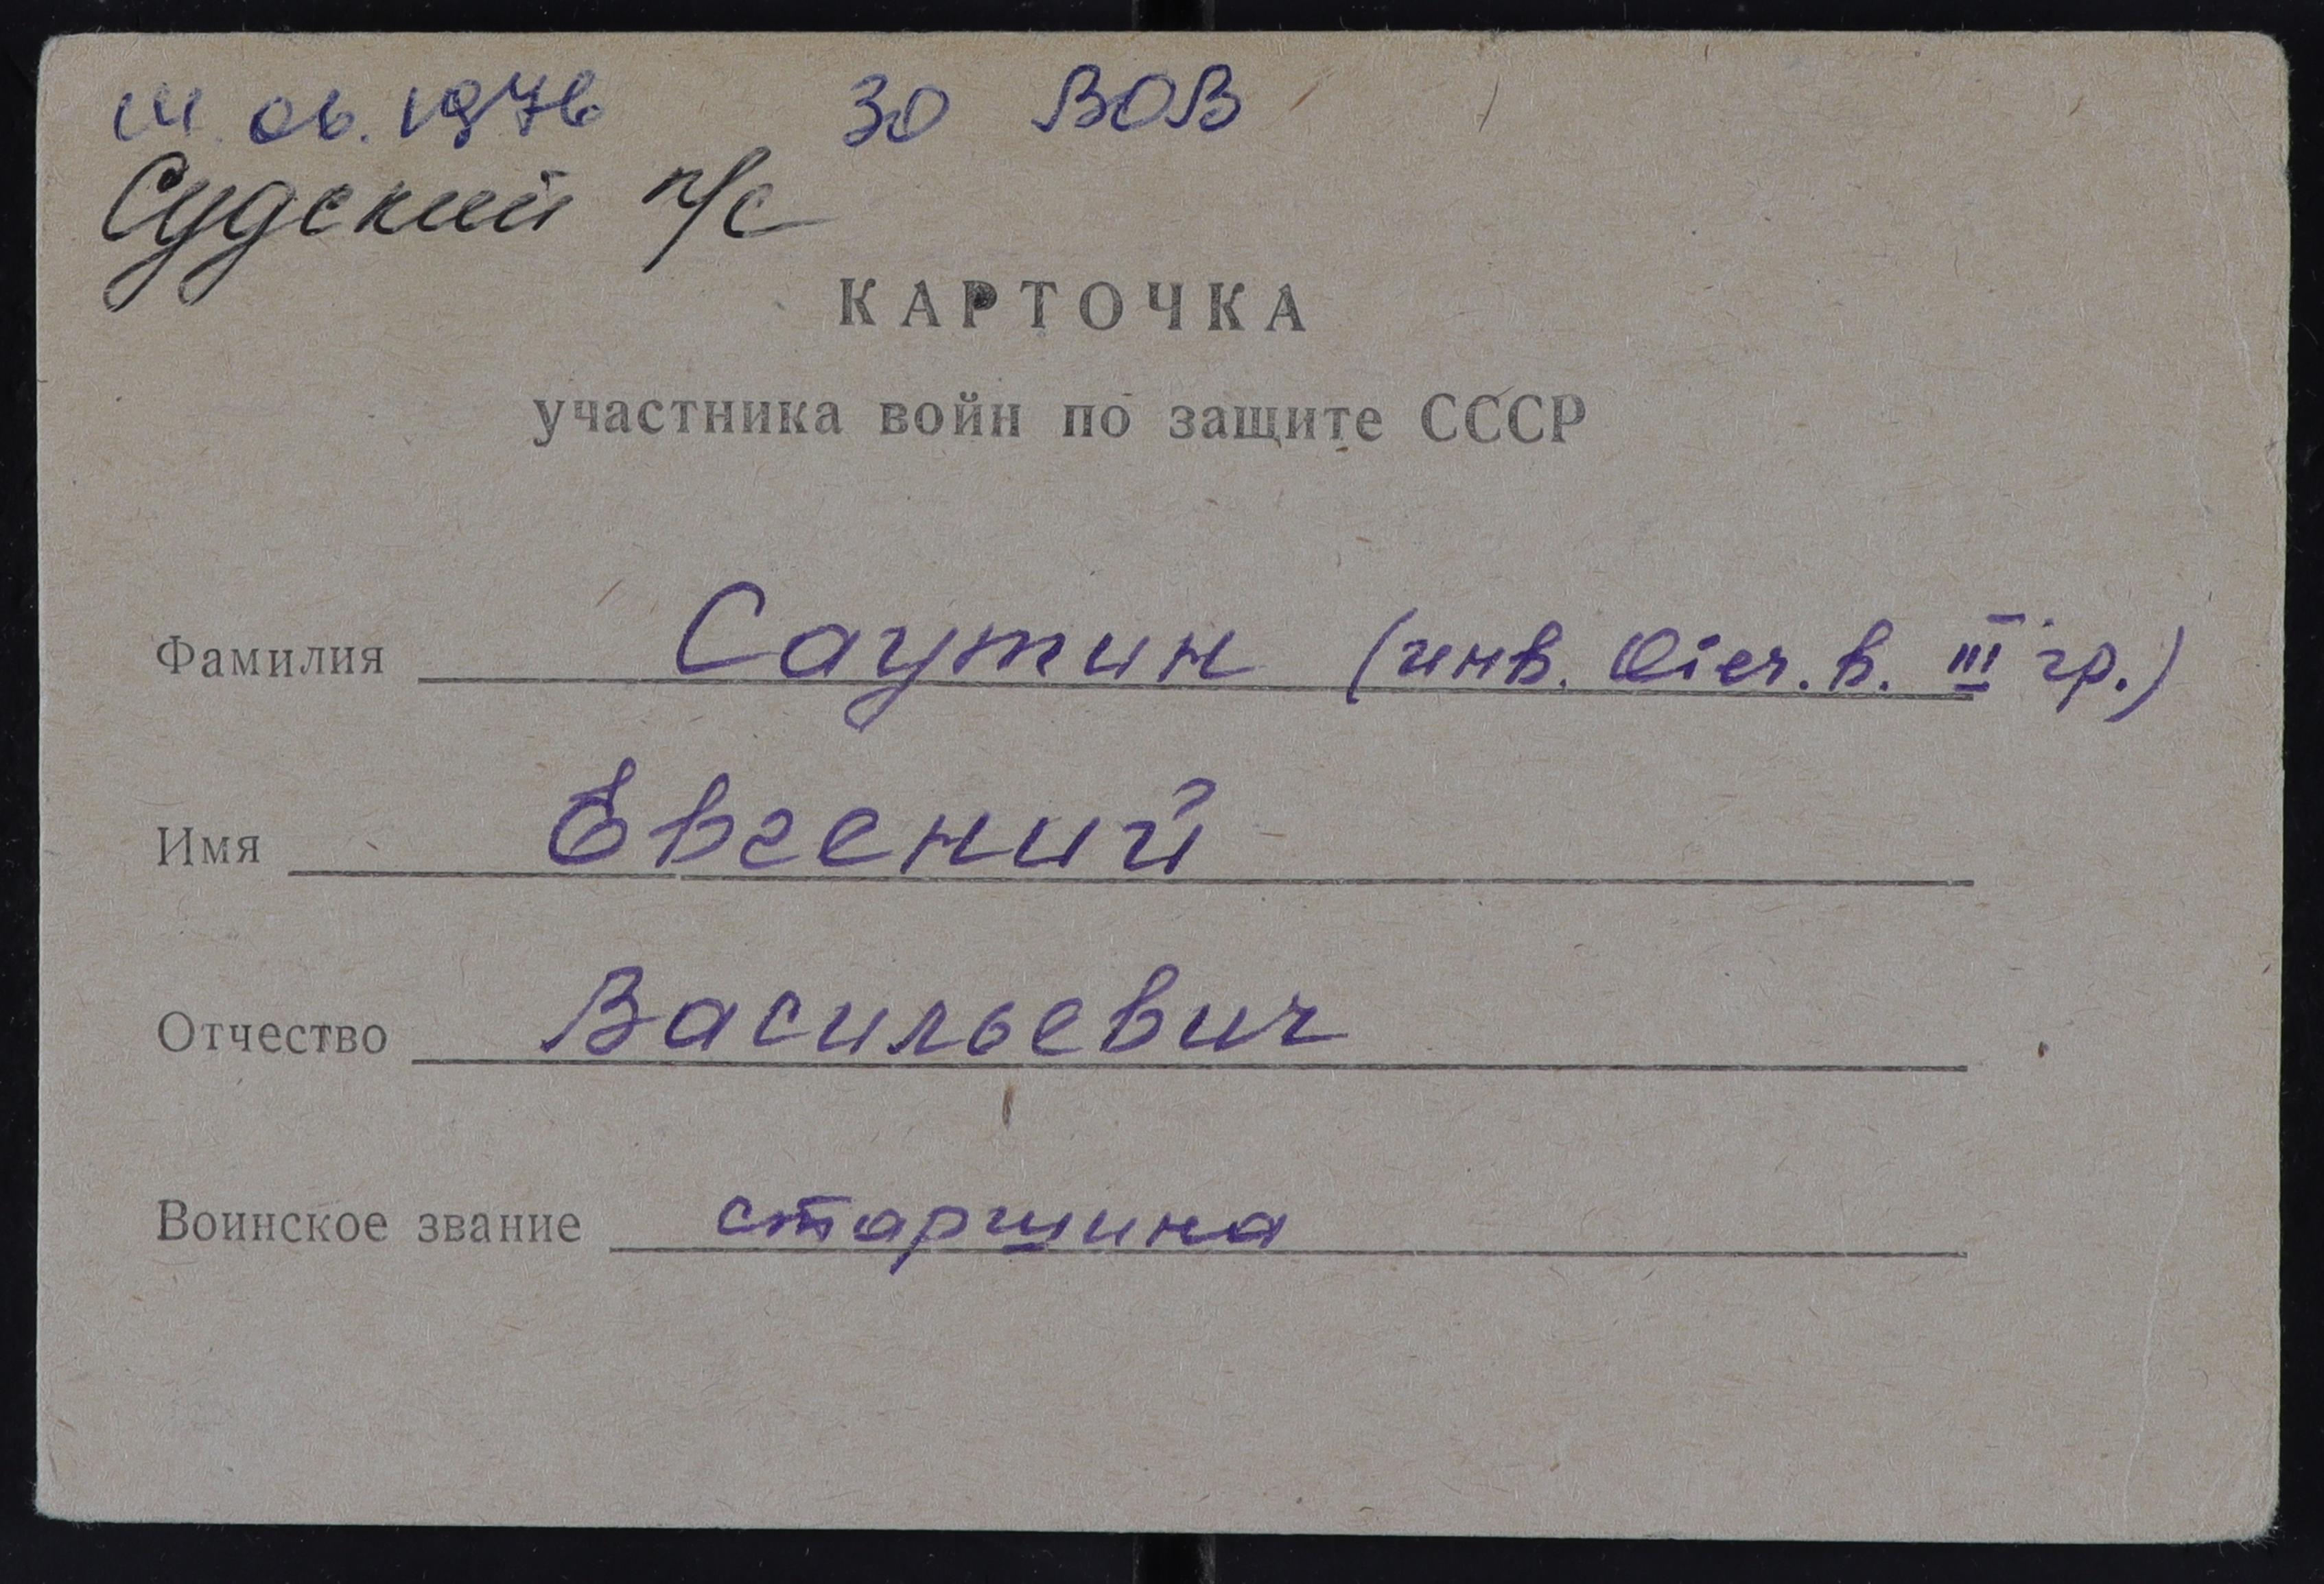 06.1976 30 ВОВ
Судский п/с
КАРТОЧКА
участника войн по защите СССР
Фамилия Саутин (инв. Отеч. в. III гр.)
Имя Евгений
Отчество Васильевич
Воинское звание старшина